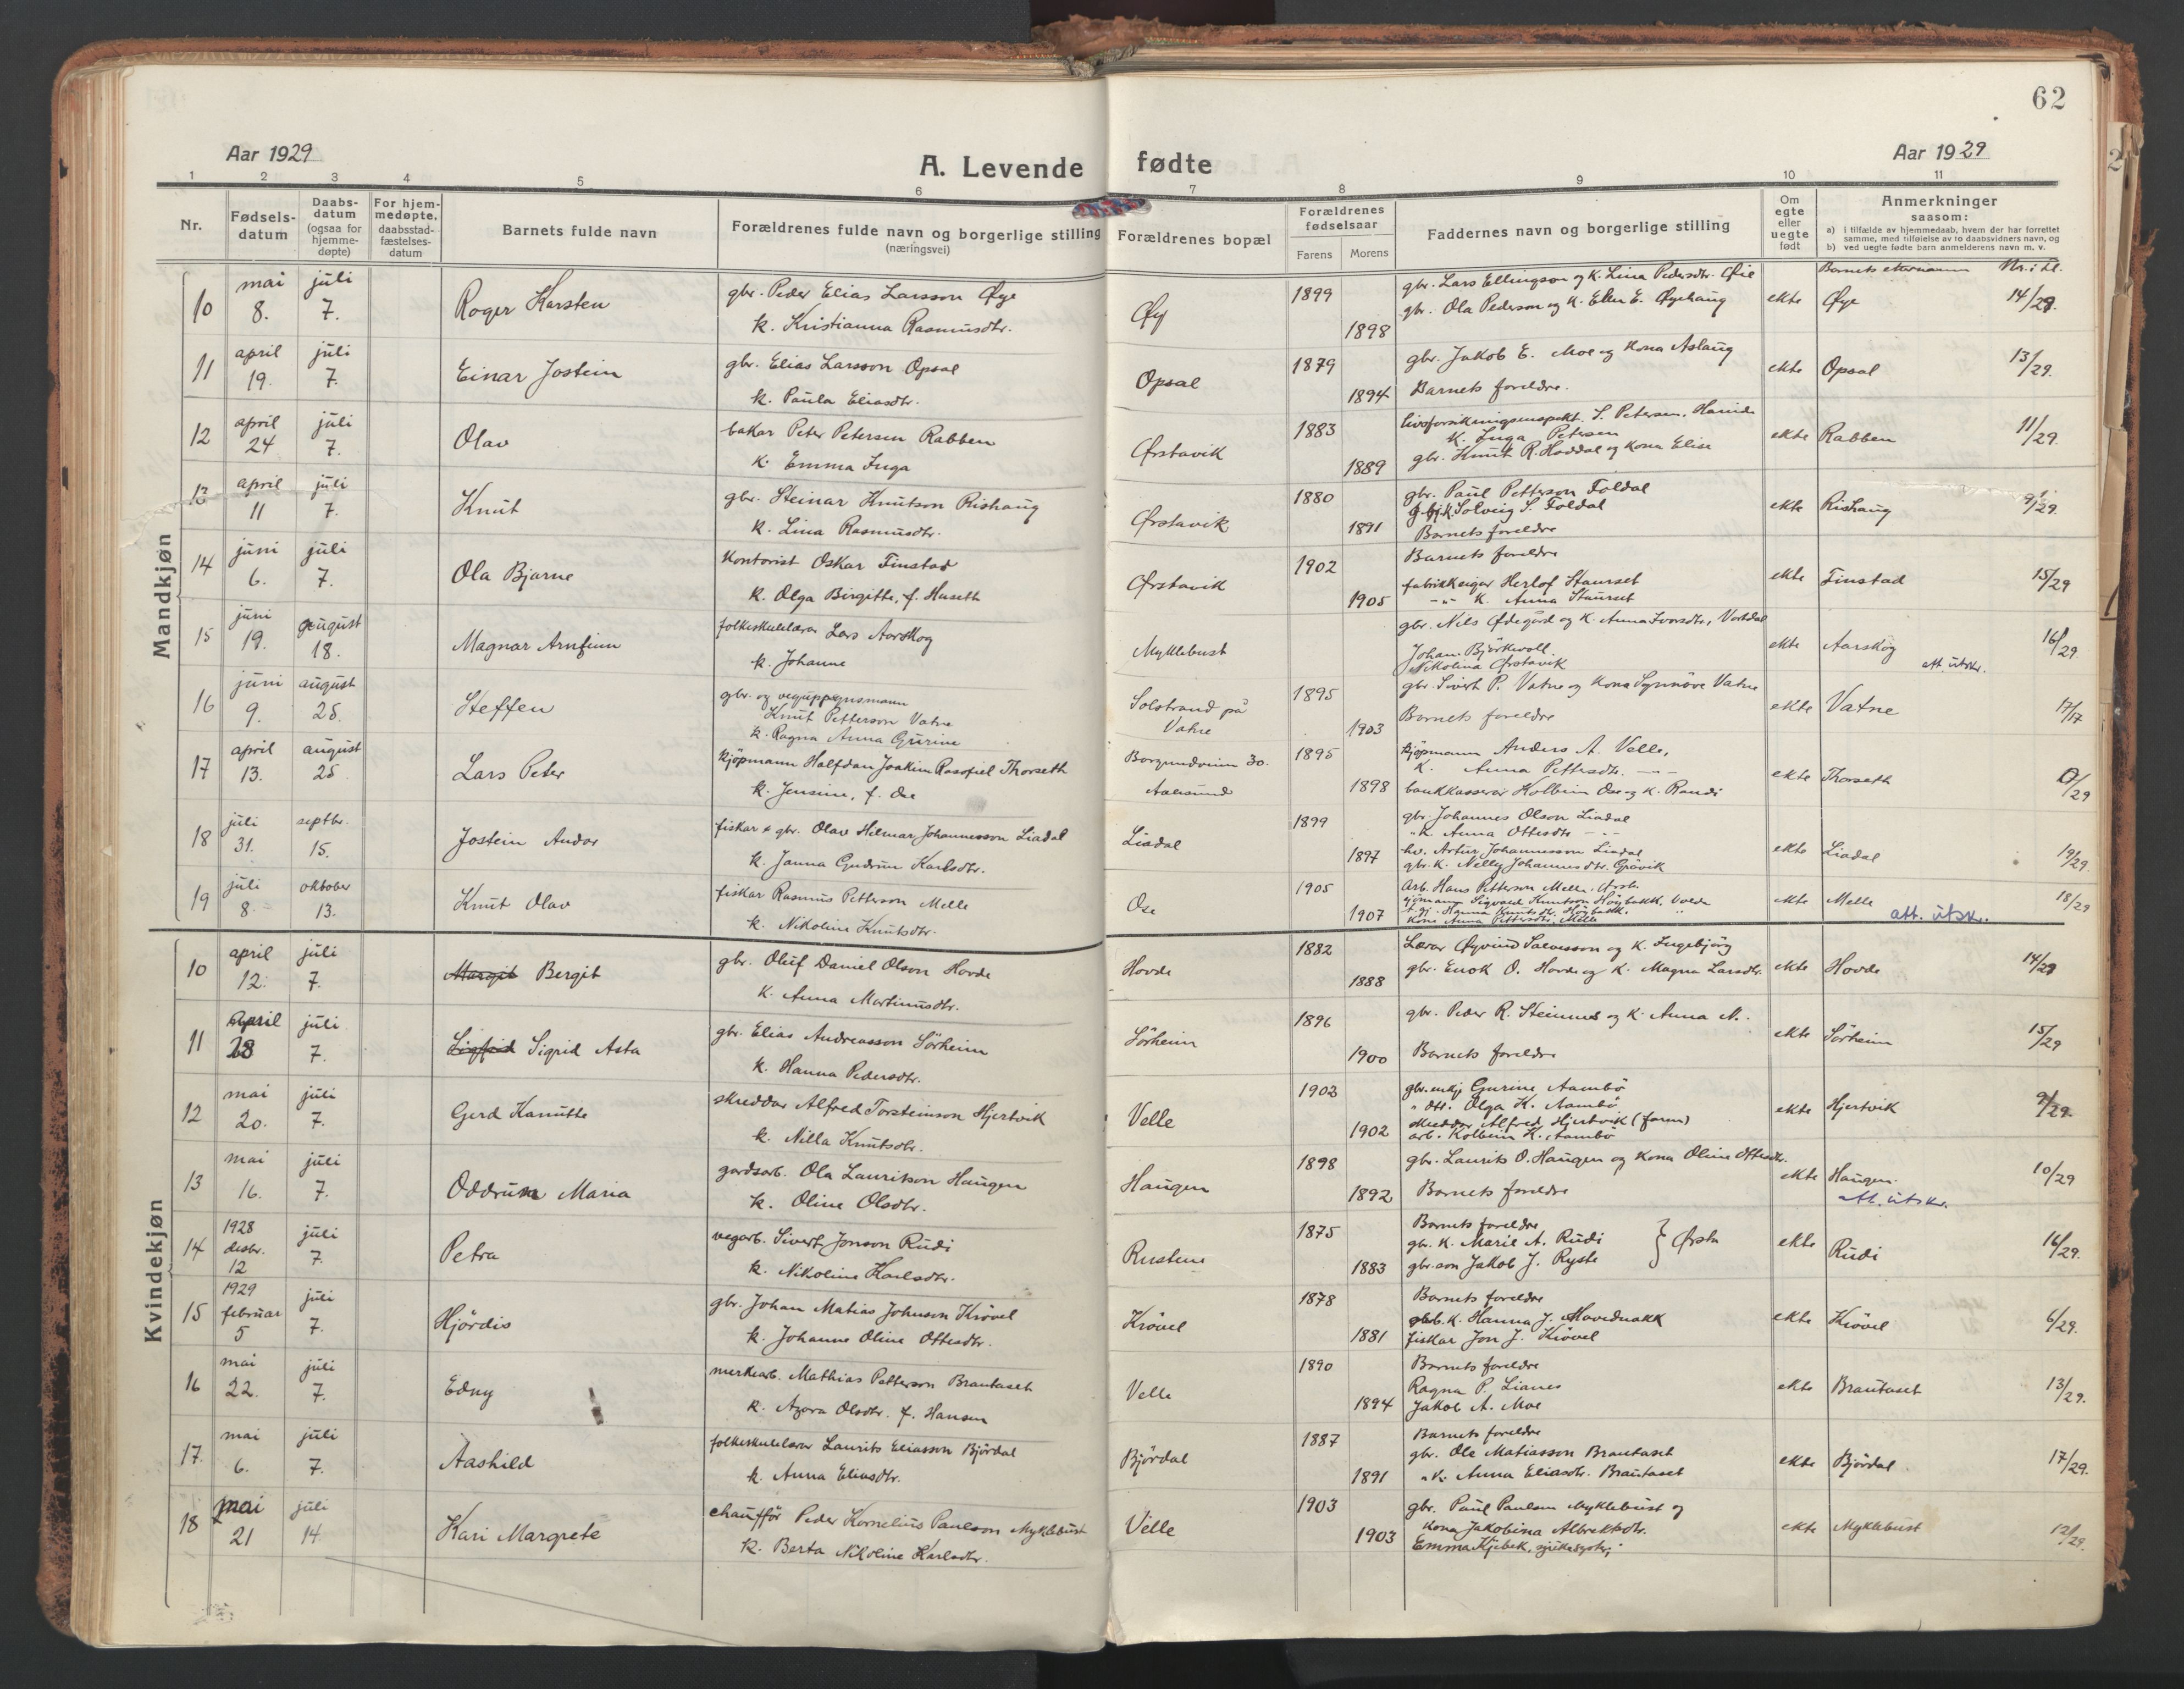 62
Aar 1929
A. Levende fødte
Aar 1929
1 2 3 4 5 6 7 8 9 10 11
Nr.
Fødsels-
datum
Daabs-
datum
(ogsaa for
hjemme-
døpte)
For hjem-
medøpte,
daabsstad-
fæstelses-
datum
Barnets fulde navn
Forældrenes fulde navn og borgerlige stilling
(næringsvei)
Forældrenes bopæl
Forældrenes
fødselsaar
Farens Morens
Faddernes navn og borgerlige stilling
Om
egte
eller
uegte
født
Anmerkninger
saasom:
a) i tilfælde av hjemmedaab, hvem der har forrettet
samme, med tilføielse av to daabsvidners navn, og
b) ved uegte fødte barn anmelderens navn m. v.
Barnets etternamn Nr. i fl.
Mandkjøn
10 mai 8. juli 7. Roger Karsten
gbr. Peder Elias Larsson Øye
k. Kristianna Rasmusdtr.
Øy 1899 1898
gbr. Lars Ellingson og k. Lina Pedersdtr. Øie
gbr. Ola Pederson og k. Ellen E. Øyehaug
ekte Øye 14/29.
11 april 19. juli 7. Einar Jostein
gbr. Elias Larsson Opsal
k. Paula Eliasdtr.
Opsal 1879 1894
gbr. Jakob E. Moe og kona Aslaug
Barnets foreldre.
ekte Opsal 13/29.
12 april 24 juli 7. Olav
bakar Peter Petersen Rabben
k. Emma Inga
Ørstavik 1883 1889
S. Petersen,
k. Inga Petersen
gbr. Knut R. Hovdal og kona Elise
ekte Rabben 11/29.
13 april 11 juli 7. Knut
gbr. Steinar Knutson Rishaug
k. Lina Rasmusdtr.
Ørstavik 1880 1891
gbr. Paul Petterson Foldal
Solveig S. Foldal
Barnets foreldre
ekte Rishaug 9/29.
14 juni 6. juli 7. Ola Bjarne
Kontorist Oskar Finstad
k. Olga Birgitte, f. Huseth
Ørstavik 1902 1905
Barnets foreldre
fabrikkeigar Herlof Staurset
-"- k. Anna Staurset
ekte Finstad 15/29
15 juni 19. august 18. Magnar Arnfinn
folkeskulelærar Lars Aarskog
k. Johanne
Myklebust
gbr. Nils Ødegård og k. Anna Ivarsdtr., Vartdal
Johan Björkvoll
Nikolina Ørstavik
ekte Aarskog att. utskr. 16/29.
16 juni 9. august 25. Steffen
gbr. og veguppsynsmann
Knut Petterson Vatne
k. Ragna Anna Gurine
Solstrand på
Vatne
1895 1903
gbr. Sivert P. Vatne og kona Synnöve Vatne
Barnets foreldre
ekte Vatne 17/17
17 april 13. august 25 Lars Peter
Kjöpmann Halfdan Joakim Rasofiel Thorseth
k. Jensine, f. Ose
Borgundveien 30.
Aalesund
1895 1898
kjöpmann Anders A. Velle,
k. Anna Pettersdtr. -"-
bankkasserar Kolbein Ose og k. Randi
ekte Thorseth 0/29
18 juli 31. septbr. 15. Jostein Andor
fiskar & gbr. Olav Hilmar Johannesson Liadal
k. Janna Gudrun Karlsdtr.
Liadal 1899 1897
gbr. Johannes Olson Liadal
" k. Anna Ottesdtr -"-
Artur Johannesson Liadal
gbr. k. Nelly Johannesdtr. Grövik
ekte Liadal 19/29.
19 juli 8. oktober 13. Knut Olav
fiskar Rasmus Petterson Melle
k. Nikoline Knutsdtr.
Ose 1905 1907
Arb. Hans Petterson Melle, Ørst.
Sigvald Knutson Höybakk. Volda
Hanna Knutsdtr. Höybakk. "
kona Anna Pettersdtr. Melle
ekte Melle att. utskr. 18/29
Kvindekjøn
10 april 12. juli 7. Margit Bergit
gbr. Oluf Daniel Olson Hovde
k. Anna Martinusdtr.
Hovde 1882 1888
Lærar Øyvind Salvesson og k. Ingebjörg
gbr. Enok O. Hovde og k. Magna Larsdtr.
ekte Hovde 14/29
11 april 28 juli 7. Sigfrid Sigrid Asta
gbr. Elias Andreasson Sörheim
k. Hanna Pedersdtr.
Sörheim 1896 1900
gbr. Peder R. Steinnes og k. Anna N.
Barnets foreldre
ekte Sörheim 15/29
12 mai 20. juli 7. Gerd Kanutte
skreddar Alfred Torsteinson Hjertvik
k. Nilla Knutsdtr.
Velle 1902 1902
gbr. enkj Gurine Aambö
" dtr. Olga K. Aambö
skreddar Alfred Hjertvik (faren)
arb. Kolbein K. Aambö
ekte Hjertvik 9/29.
13 mai 16. juli 7. Oddrun Maria
gardsarb. Ola Lauritson Haugen
k. Oline Olsdtr.
Haugen 1898 1892
gbr. Laurits O. Haugen og kona Oline Ottesdtr.
Barnets foreldre
ekte Haugen. att. utskr. 10/29
14 1928 desbr. 12 juli 7. Petra
vegarb. Sivert Jonson Rudi
k. Nikoline Karlsdtr.
Rustene 1875 1883
Barnets foreldre
gbr. k. Marie A. Rudi
gbr. son Jakob J. Ryste
} Ørsta
ekte Rudi 16/29.
15 1929 februar 5 juli 7. Hjördis
gbr. Johan Matias Johnson Krövel
k. Johanne Oline Ottesdtr.
Krövel 1878 1881
Barnets foreldre
k. Hanna J. Hovednakk
fiskar Jon J. Krövel
ekte Krövel 6/29.
16 mai 22. juli 7. Edny
Mathias Petterson Brautaset
k. Azora Olsdtr. f. Hansen
Velle 1890 1894
Barnets foreldre
Ragna P. Lianes
Jakob A. Moe
ekte Brautaset 13/29.
17. mai 6. juli 7. Aashild
folkeskulelærar Laurits Eliasson Björdal
k. Anna Eliasdtr.
Björdal 1887 1891
Barnets foreldre
gbr. Ole Matiasson Brautaset
" k. Anna Eliasdtr. Brautaset
ekte Björdal. 17/29.
18 mai 21 juli 14 Kari Margrete
chaufför Peder Kornelius Paulson Myklebust
k. Berta Nikoline Karlsdtr.
Velle 1903 1903
gbr. Paul Paulsen Myklebust og
kona Jakobina Albrektsdtr.
Emma Kjebek, sjukesyster,
ekte Myklebust 12/29.